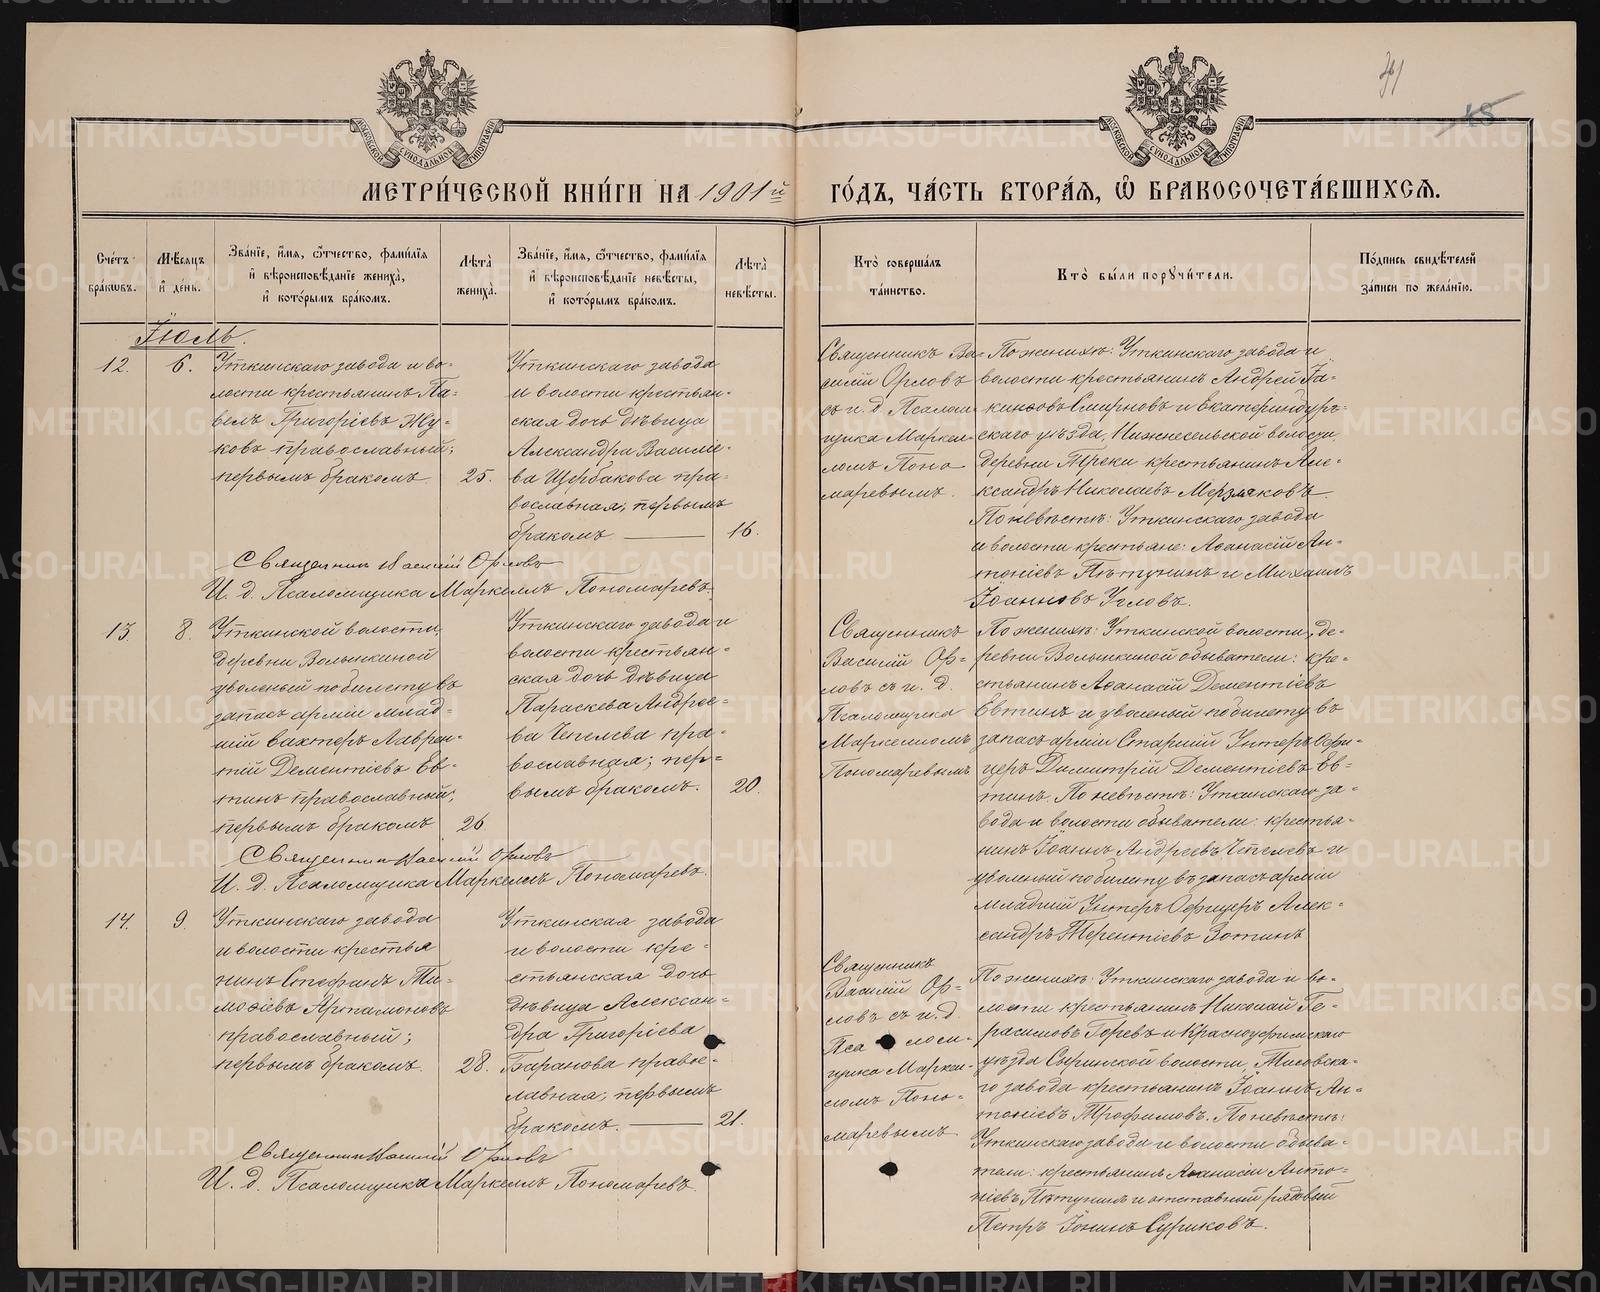 МЕТРИ́ЧЕСКОЙ КНИ́ГИ НА 1901й ГО́ДЪ, ЧА́СТЬ ВТОРА́Я, Ѿ БРАКОСОЧЕТА́ВШИХСЯ.
18
МОСКОВСКОЙ СУНОДАЛЬНОЙ ТИПОГРАФІИ
МОСКОВСКОЙ СУНОДАЛЬНОЙ ТИПОГРАФІИ
Счетъ бра́кωвъ.
Мѣсяцъ и҆ де́нь.
Зва́нїе, и҆́мя, ѻ҆́тчество, фами́лїя
и҆ вѣроисповѣ́данїе жениха̀,
и҆ кото́рымъ бра́комъ.
Лѣта̀ жениха̀.
Зва́нїе, и҆́мя, ѻ҆́тчество, фами́лїя
и҆ вѣроисповѣ́данїе невѣ́сты,
и҆ кото́рымъ бра́комъ.
Лѣта̀ невѣ́сты.
Кто̀ соверша́лъ та́инство.
Кто̀ бы́ли порꙋчи́тели.
По́дпись свидѣ́телей за́писи по жела́нїю.
Іюль.
12.
6.
Уткинскаго завода и во-
лости крестьянинъ Па-
велъ Григоріевъ Жу-
ковъ православный;
первымъ бракомъ
25.
Уткинскаго завода
и волости крестьян-
ская дочь дѣвица
Александра Василіе-
ва Щербакова пра-
вославная; первымъ
бракомъ
16.
Священникъ Ва-
силій Орловъ
съ и. д. Псалом-
щика Маркел-
ломъ Поно-
маревымъ.
По женихѣ: Уткинскаго завода и
волости крестьянинъ Андрей Іа-
кимовъ Смирновъ и Екатеринбург-
скаго уѣзда, Нижнесельской волости,
деревни Треки крестьянинъ Але-
ксандръ Николаевъ Мерзляковъ
По невѣстѣ: Уткинскаго завода
и волости крестьяне: Аѳанасій Ан-
тоніевъ Пѣтунинъ и Михаилъ
Іоанновъ Угловъ.
Священникъ Василій Орловъ
И. д. Псаломщика Маркеллъ Пономаревъ.
13
8.
Уткинской волости,
деревни Волынкиной
уволеный по билету въ
запасъ арміи млад-
шій вахтеръ Лаврен-
тій Дементіевъ Ев-
тинъ православный;
первымъ бракомъ
26
Уткинскаго завода и
волости крестьян-
ская дочь дѣвица
Параскева Андрее-
ва Чепелева пра-
вославная; пер-
вымъ бракомъ.
20.
Священникъ
Василій Ор-
ловъ съ и. д.
Псаломщика
Маркелломъ
Пономаревымъ
По женихѣ: Уткинской волости, де-
ревни Волынкиной обыватели: кре-
стьянинъ Аѳанасій Дементіевъ
Евтинъ и уволеный по билету въ
запасъ арміи Старшій Унтеръ Офи-
церъ Димитрій Дементіевъ Ев-
тинъ. По невѣстѣ: Уткинскаго за-
вода и волости обыватели: крестья-
нинъ Іоаннъ Андреевъ Чепелевъ и
уволеный по билету въ запасъ арміи
младшій Унтеръ Офицеръ Алек-
сандръ Терентіевъ Зотинъ
Священникъ Василій Орловъ
И. д. Псаломщика Маркеллъ Пономаревъ.
14.
9.
Уткинскаго завода
и волости крестья
нинъ Стефанъ Ти-
моѳіевъ Артамоновъ
православный;
первымъ бракомъ.
28.
Уткинская завода
и волости кре-
стьянская дочь
дѣвица Алексан-
дра Григоріева
Баранова право-
славная; первымъ
бракомъ.
21.
Священникъ
Василій Ор-
ловъ съ и. д.
Псалом-
щика Маркел-
ломъ Поно-
маревымъ
По женихѣ: Уткинскаго завода и во-
лости крестьянинъ Николай Ге-
расимовъ Горевъ и Красноуфимскаго
уѣзда Сыринской волости, Тисовска-
го завода крестьянинъ Іоаннъ Ан-
тоніевъ Трофимовъ. По невѣстѣ:
Уткинскаго завода и волости обыва-
тели: крестьянинъ Аѳанасій Анто-
ніевъ Пѣтунинъ и отставный рядовый
Петръ Іонинъ Суриковъ.
Священникъ Василій Орловъ
И. д. Псаломщика Маркеллъ Пономаревъ.
METRIKI.GASO-URAL.RU